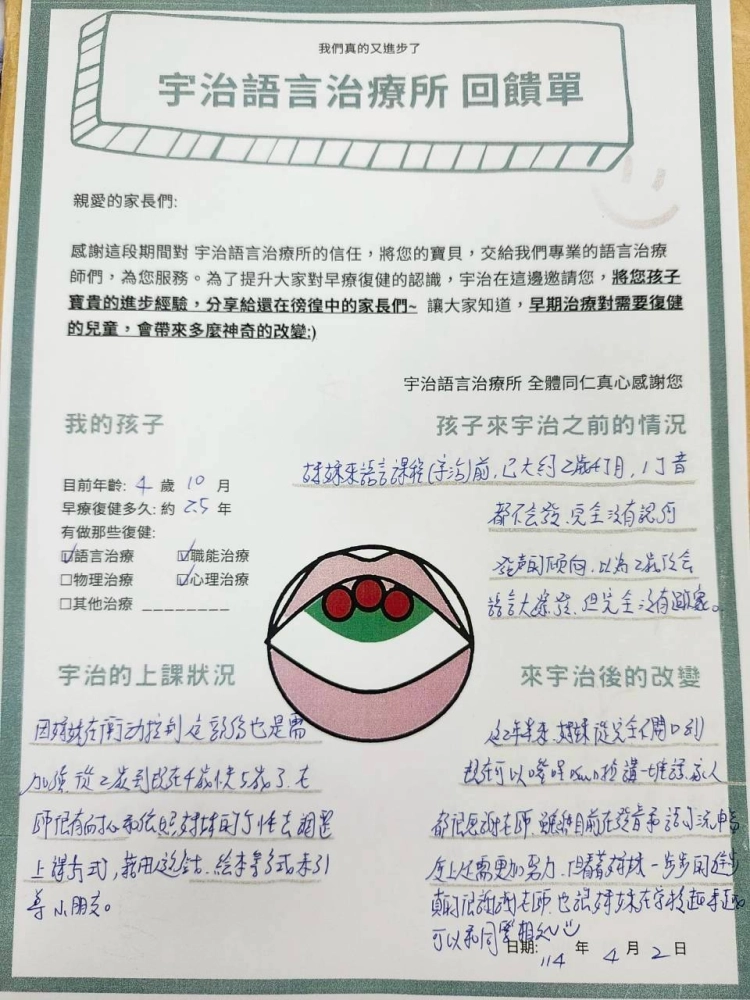 我們真的又進步了
宇治語言治療所 回饋單
親愛的家長們:
感謝這段期間對 宇治語言治療所的信任，將您的寶貝，交給我們專業的語言治療
師們，為您服務。為了提升大家對早療復健的認識，宇治在這邊邀請您，將您孩子
寶貴的進步經驗，分享給還在徬徨中的家長們~ 讓大家知道，早期治療對需要復健
的兒童，會帶來多麼神奇的改變:)
宇治語言治療所 全體同仁真心感謝您
我的孩子
目前年齡: 4 歲 10 月
早療復健多久: 約 2.5 年
有做那些復健:
☑語言治療 ☑職能治療
☐物理治療 ☑心理治療
☐其他治療 _________
孩子來宇治之前的情況
妹妹來語言課程(宇治)前，已大約2歲4個月，1個音
都不會發、完全沒有認何
發声的傾向，以為2歲後會
語言大爆發，但完全沒有
宇治的上課狀況
因妹妹在衝动控制 這部份也是需
加強 從2歲到現在4歲快5歲了，老
師很有耐心和依照妹妹的个性去調整
上課方式， 繪本等方式來引
導小朋友。
來宇治後的改變
這2年半來 妹妹從完全不開口到
現在可以嘰哩呱啦的講一堆話，家人
都很感謝老師，雖然目前在發音和語句流暢
度上还需更加努力，但看著妹妹一步步的進步
真的很謝謝老師 也讓妹妹在学校
可以和同學
日期: 114 年 4 月 2 日